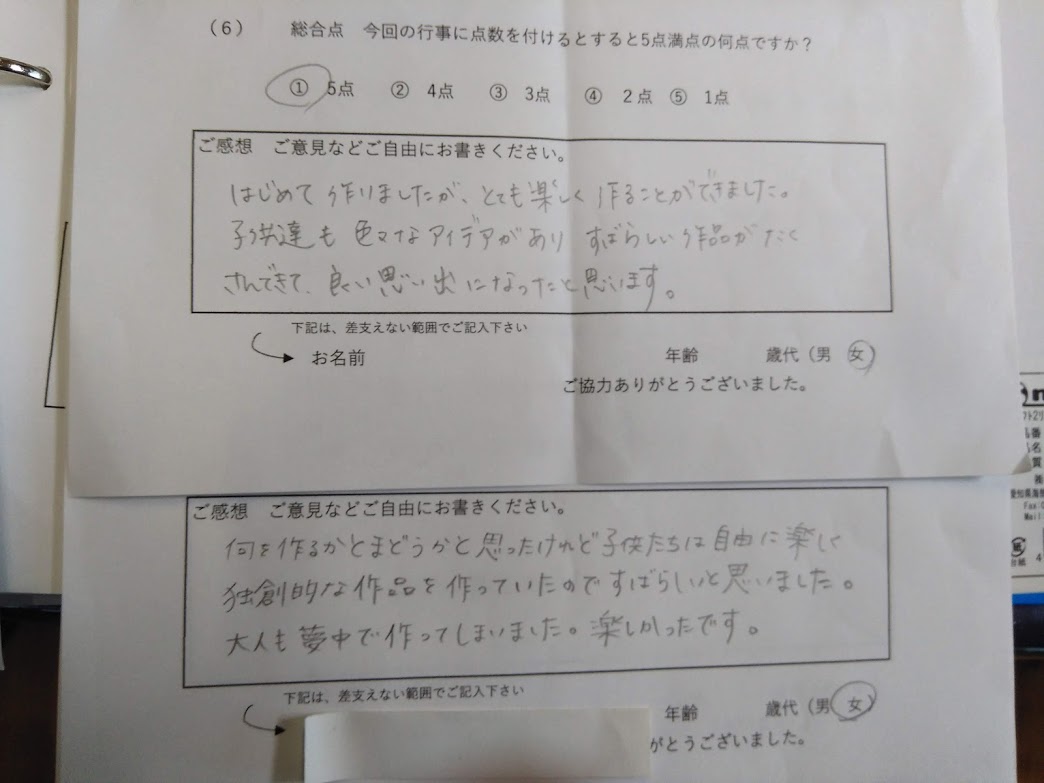 (6) 総合点 今回の行事に点数を付けるとすると5点満点の何点ですか?
① 5点 ② 4点 ③ 3点 ④ 2点 ⑤ 1点
ご感想 ご意見などご自由にお書きください。
はじめて作りましたが、とても楽しく作ることができました。
子供達も色々なアイデアがあり すばらしい作品がたく
さんできて、良い思い出になったと思います。
下記は、差支えない範囲でご記入下さい
お名前 年齢 歳代(男 女)
ご協力ありがとうございました。
ご感想 ご意見などご自由にお書きください。
何を作るかとまどうかと思ったけれど子供たちは自由に楽しく
独創的な作品を作っていたのですばらしいと思いました。
大人も夢中で作ってしまいました。楽しかったです。
下記は、差支えない範囲でご記入下さい
年齢 歳代(男 女)
がとうございました。